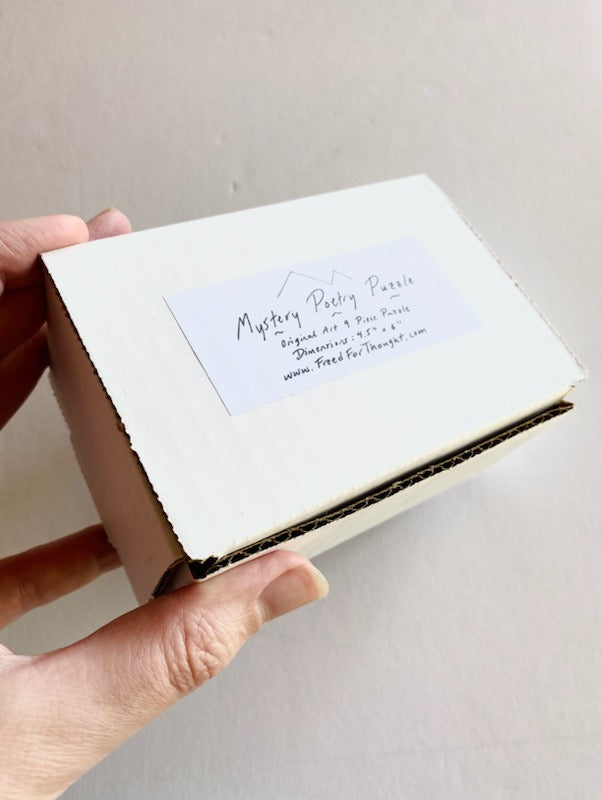 Mystery Poetry Puzzle
~ ~ ~
Original Art 9 Piece Puzzle
Dimensions: 4.5" x 6"
www.FreedForThought.com